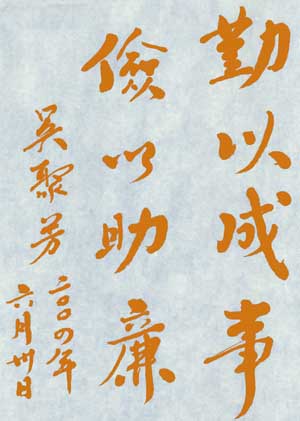 勤以成事
儉以助廉
吴聚芳
二〇〇四年
六月卅日